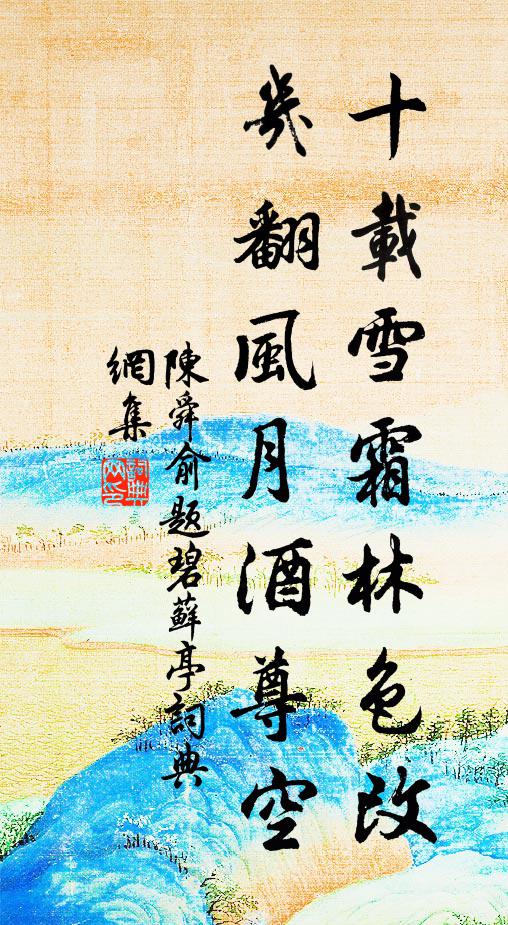 十載雪霜林色改
幾翻風月酒尊空
陳舜俞题碧蘚亭詞典
網集
詞典